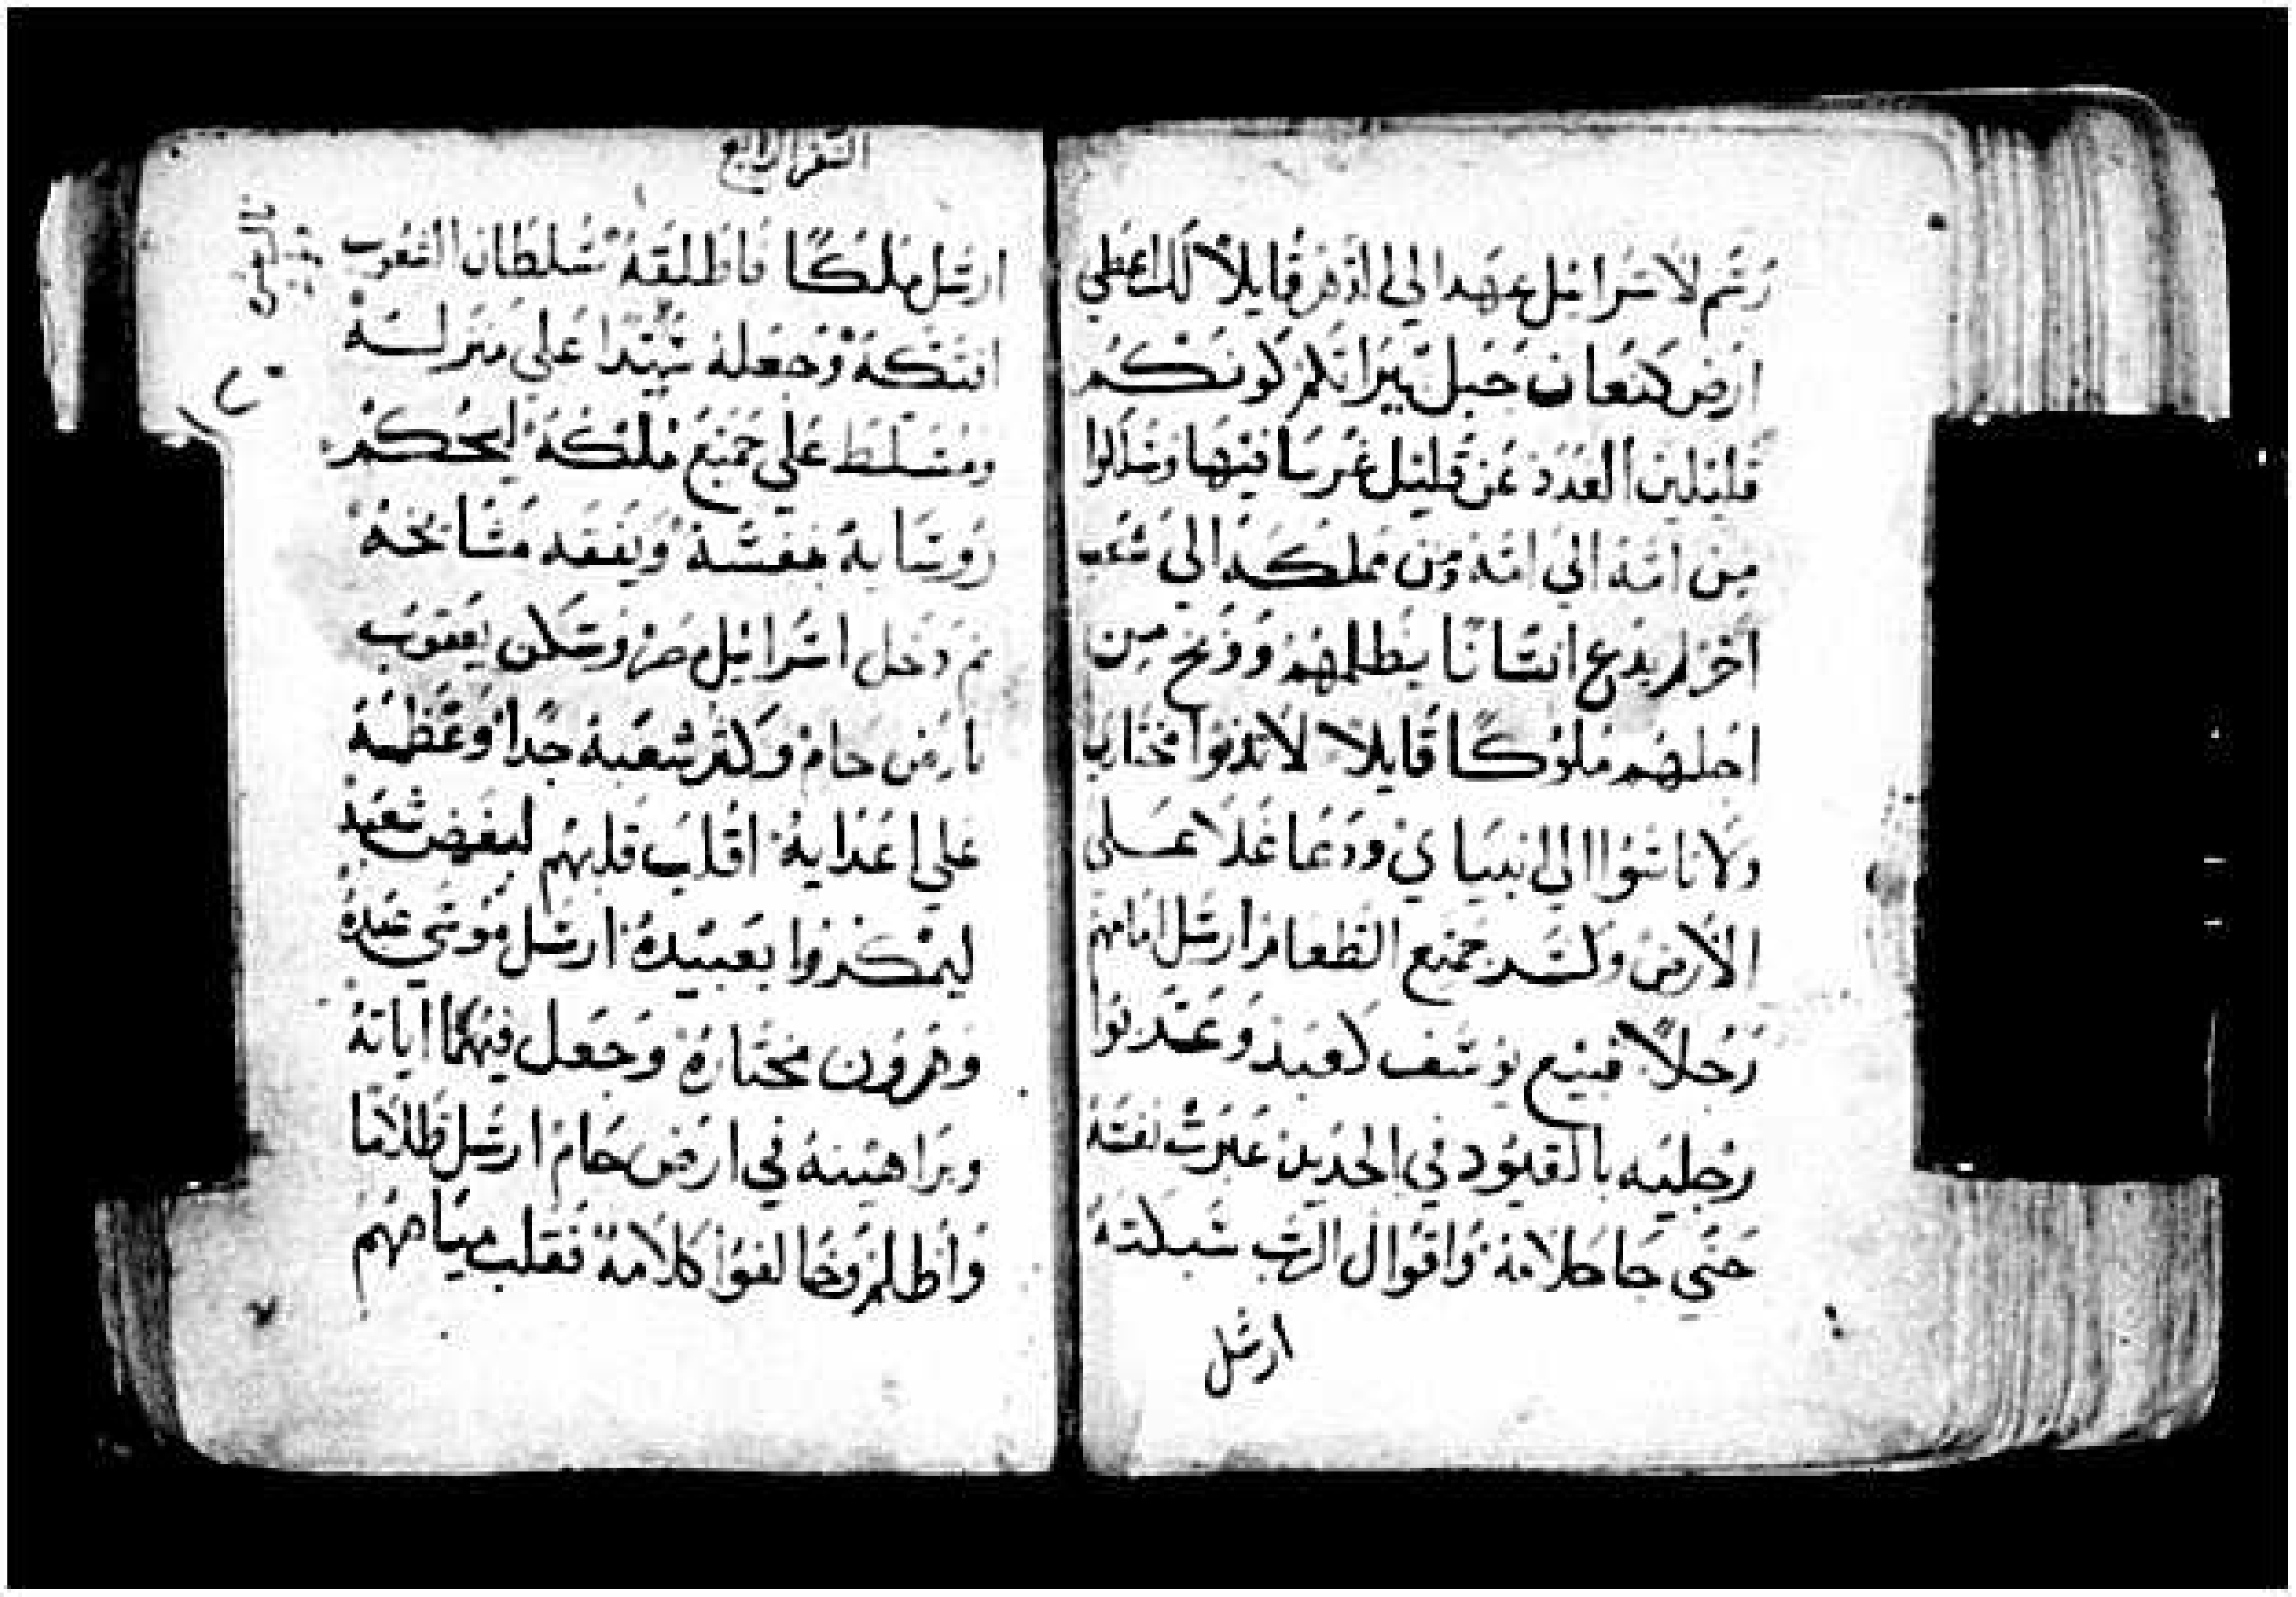 رسم لاسرائيل عهدا الي الدهر قايلا لك اعطي
ارض كنعان حبل ميراثكم كونكم
قليلين العدد عن قليل غربا فيها وسالوا
من امة الي امة ومن مملكة الي شعب
اخر لم يدع انسانا يظلمهم ووبخ من
اجلهم ملوكا قايلا لا تدنوا مختاريا
ولا تاسوا الي انبياي ودعا غلا علي
الارض وكسر جميع الطعام ارسل امامهم
رجلا فبيع يوسف كعبد وعذبوا
رجليه بالقيود في الحديد عبرت نفسه
حتي جا كلامة واقوال الرب سبكته
ارسل
السفر الرابع
ارسل ملكا فاطلقه سلطان الشعوب
افتكة وجعله سيدا علي منزلة
ومسلط علي جميع ملكة ليحكم
روسايه كنفسة ويفقه مشايخه
ثم دخل اسرائيل مصر وسكن يعقوب
بارض حام وكثر شعبة جدا وعظمه
علي اعدايه اقلب قلبهم لبغض شعبه
ليمكروا بعبيده ارسل موسي عبده
وهرون مختاره وجعل فيهما اياته
وبراهينه في ارض حام ارسل ظلاما
واظلم وخالفوا كلامه فقلب مياههم